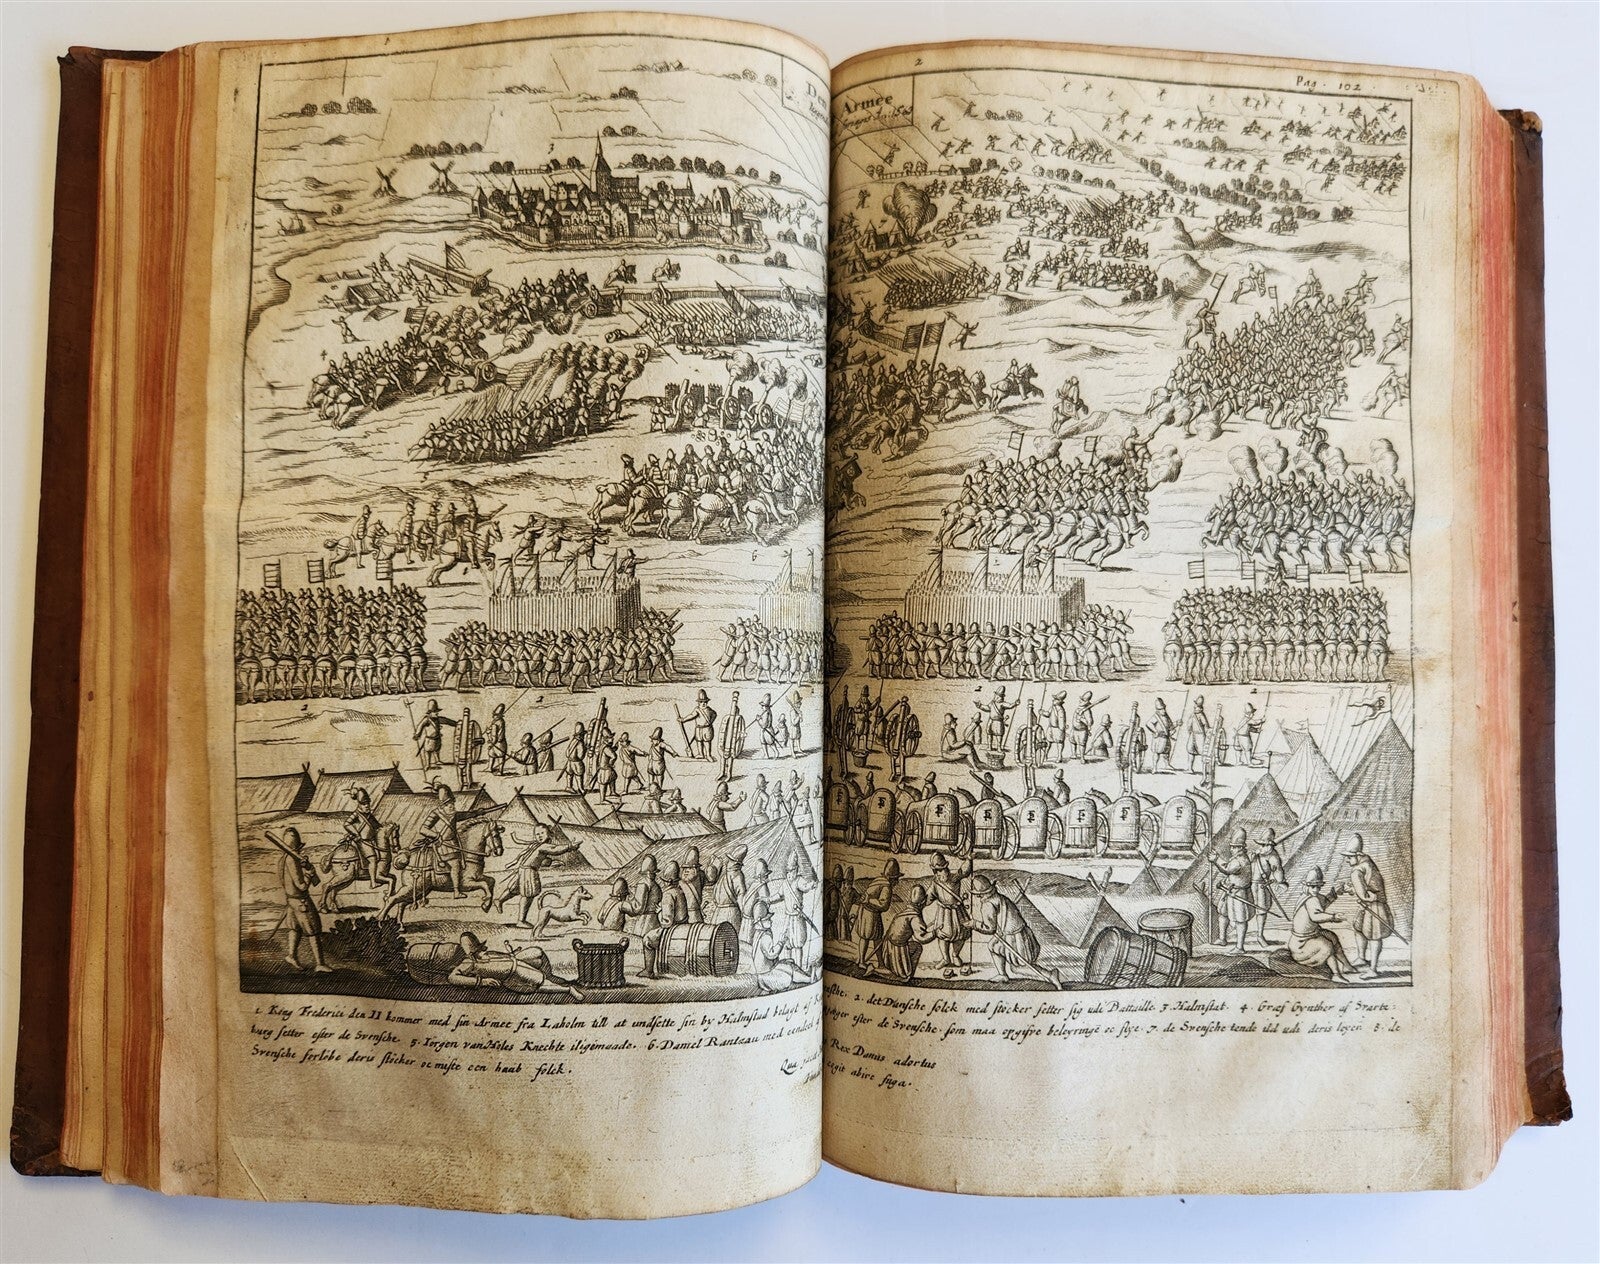 2
Pag. 102.
Den
Armee
3
1. King Frederici den II kommer med sin Armee fra Laholm till at undsette sin by Halmstad belagt af
2. det Dansche folck med stöcker setter sig udi Battaille. 3. Halmstat. 4. Græf Gynther af Svarte:
burg setter efter de Svensche. 5. Iørgen van Holes Knechte
6. Daniel Rantzau med
efter de Svensche. som maa opgifve beleyringe oc flye. 7. de Svensche tende ild udi deris leyer. 8. de
Svensche forlobe deris stöcker oc miste een haab folck.
Rex Danus adortus
abire fuga.